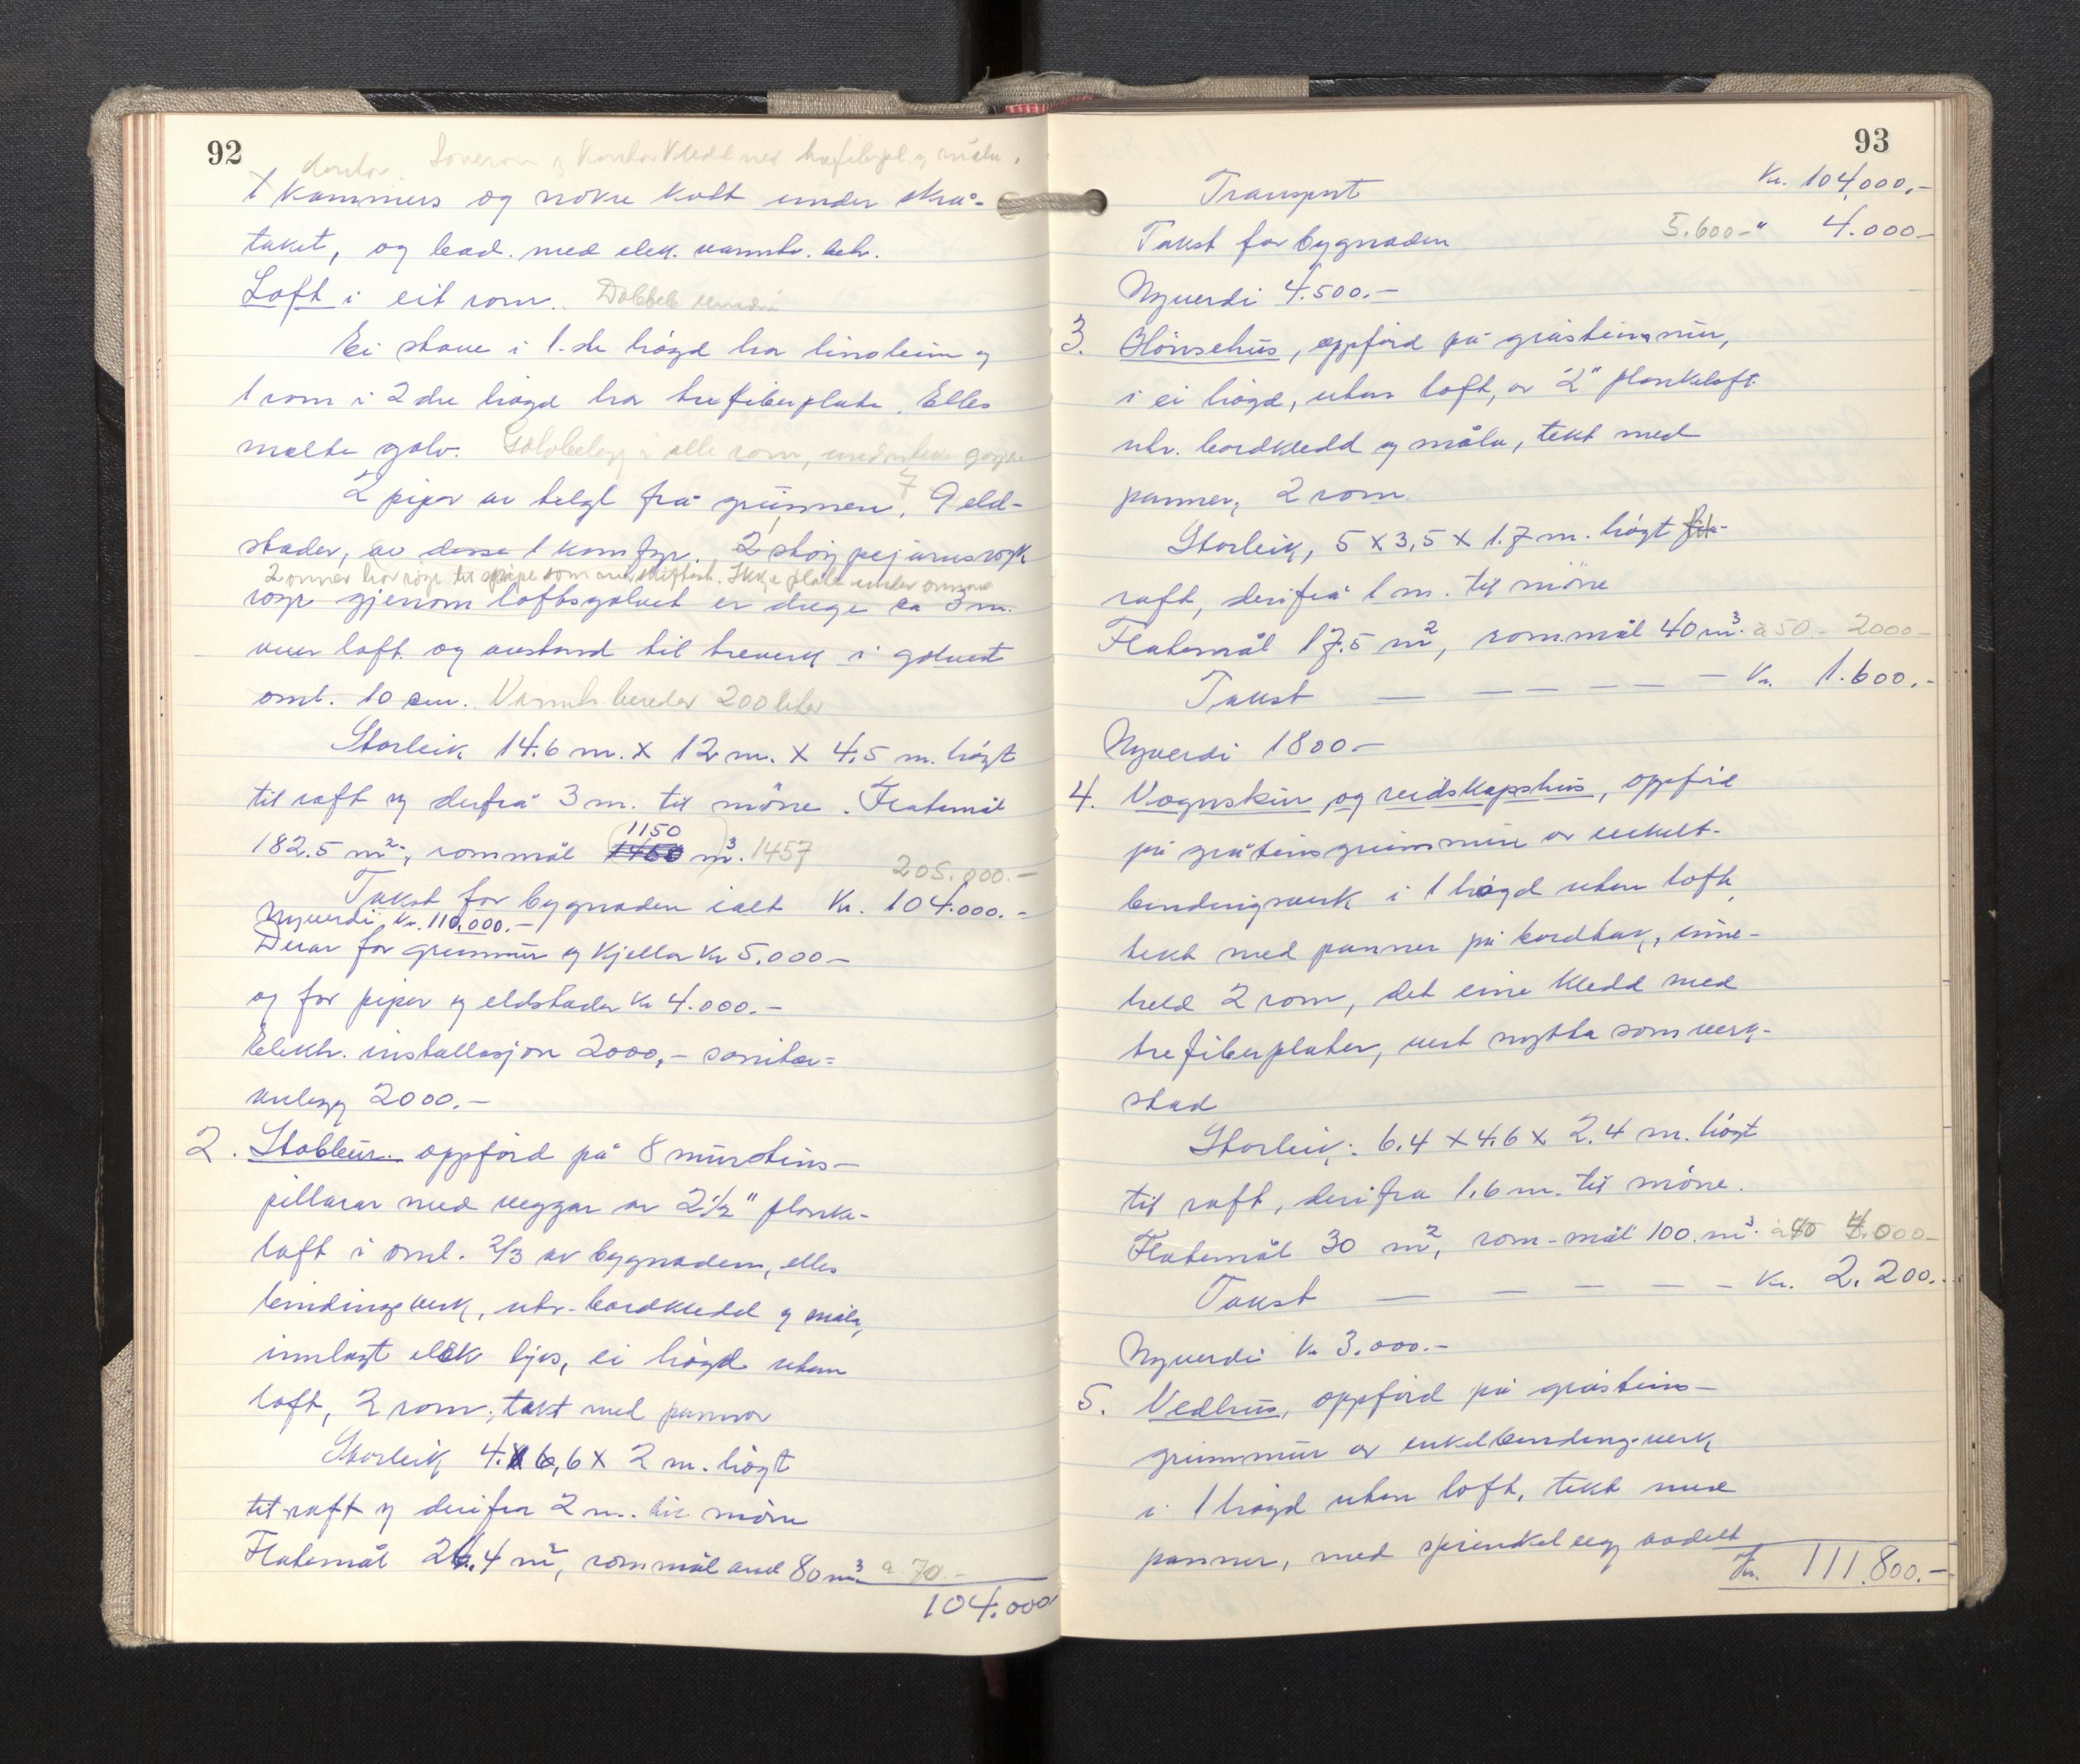 92
Soverom og Kontor Kledd med trefiberpl. og måla.
1 Kammers og nokre kott under skrå-
taket, og bad. med elek. varmtv. beh.
Loft i eit rom. Dobbele
Ei stove i 1.ste høgd har linoleum og
1 rom i 2dre høgd har trefiberplate. Elles
malte golv. Golvbelegg i alle rom, gang.
2 piper av telgst. frå grunnen. 9 eld- 7
stader, av desse 1 komfyr. 2 støypejarnsrøyk
2 omner har røyr til pipe som Ikkje plate under omnane
røyr gjenom loftsgolvet er drege ca 3 m.
over loft og avstand til treverk i golvet
oml. 10 cm. Varmtv. bereder 200 liter
Storleik 14.6 m. x 12 m. x 4,5 m. høgt
til raft og derfrå 3 m. til møne. Flatemål
1150
182.5 m², rommål 1460 m³. 1457
205.000.-
Takst for bygnaden ialt Kr. 104.000.-
Nyverdi Kr. 110.000.-
Derav for grunnmur og Kjellar Kr 5.000-
og for piper og eldstader Kr 4.000.-
Elektr. installasjon 2000,- sanitær-
anlegg 2000.-
2. Stabbur. oppførd på 8 mursteins-
pillarar med veggar av 2½" planke-
laft i oml. 2/3 av bygnaden, elles
bindingsverk, utv. bordkledd og måla,
innlagt elek ljos, ei høgd utan
loft, 2 rom, tekt med pannor
Storleik 4.x 6,6 x 2 m. høgt
til raft og derifra 2 m. til møne
Flatemål 26.4 m², rommål 80 m³ a 70.-
104.000
93
Transport Kr. 104.000,-
Takst for bygnaden 5.600-" 4.000-
Nyverdi 4.500.-
3. Hønsehus, oppførd på gråsteinsmur,
i ei høgd, utan loft, av 2" plankelaft
utv. bordkledd og måla, tekt med
panner, 2 rom.
Storleik, 5 x 3,5 x 1.7 m. høgt til
raft, derifrå 1 m. til møne
Flatemål 17.5 m², rommål 40 m³. à 50.- 2000-
Takst — — — — — — Kr. 1.600.-
Nyverdi 1800.-
4. Vognskur og reidskapshus, oppførd
på gråsteinsgrunnmur av enkelt-
bindingsverk i 1 høgd utan loft,
tekt med panner på bordtak, inne-
held 2 rom, det eine kledd med
trefiberplater, vert nytta som verk-
stad
Storleik: 6.4 x 4.6 x 2.4 m. høgt
til raft, derifra 1.6 m. til møne.
Flatemål 30 m², rom-mål 100. m³. à 40 4.000-
Takst — — — — — Kr. 2.200.-
Nyverdi Kr 3.000.-
5. Vedhus, oppførd på gråsteins-
grunnmur av enkelbindingsverk
i 1 høgd utan loft, tekt med
panner, med sprinkelvegg
Kr. 111.800.-